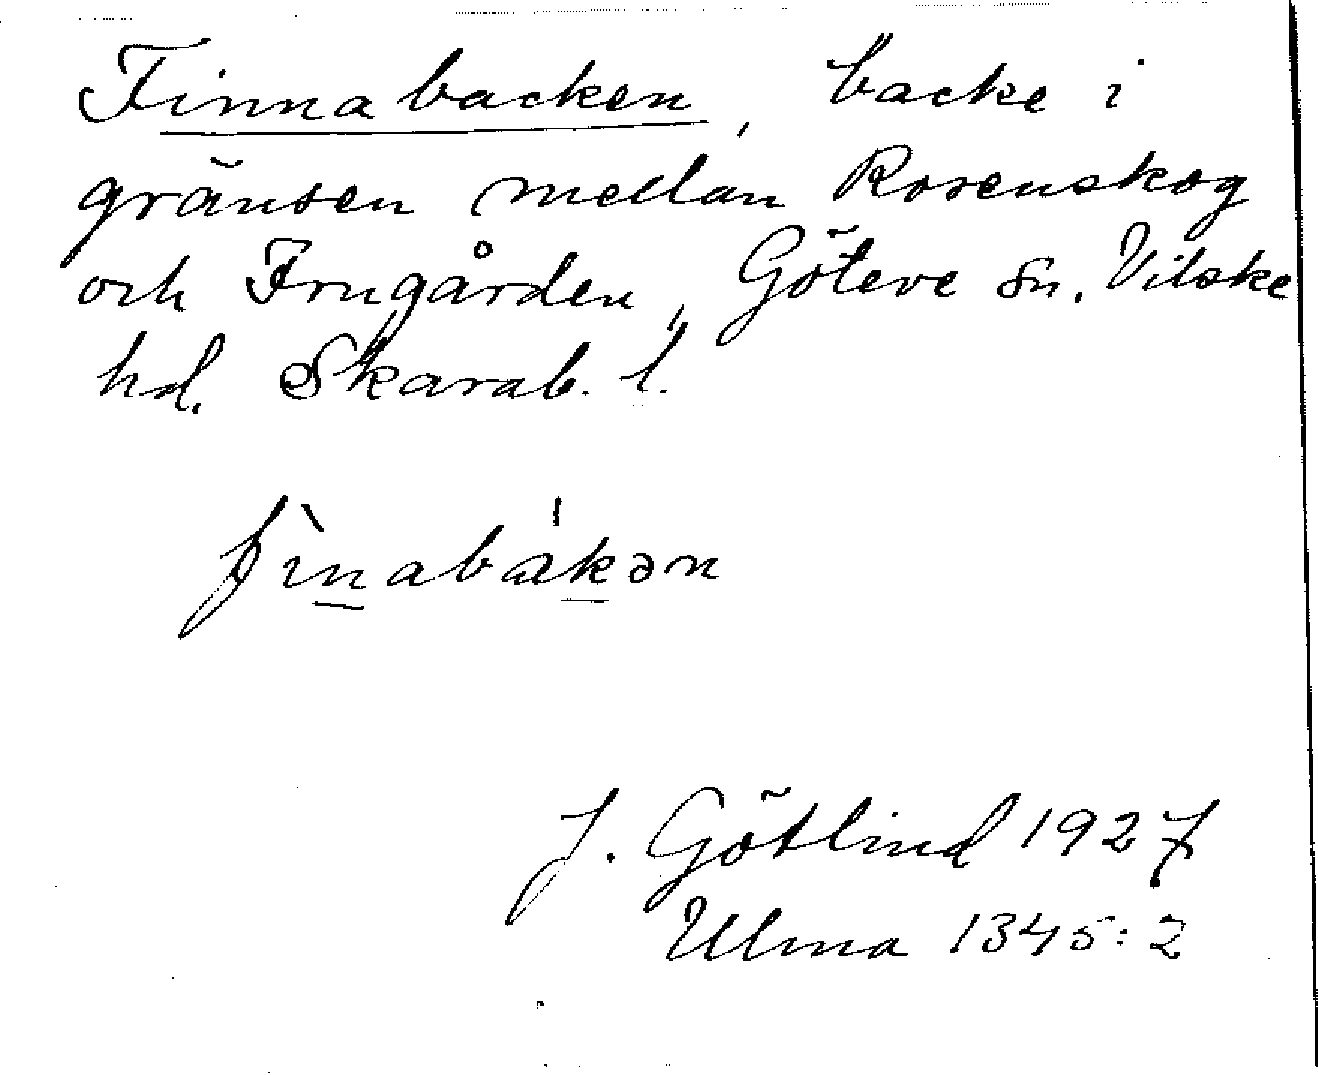 Finnabacken, backe i
gränsen mellan Rosenskog
och Frugården, Göteve sn. Vilske
hd. Skarab. l.
fìnabákən
J. Götlind 1927
Ulma 1345:2